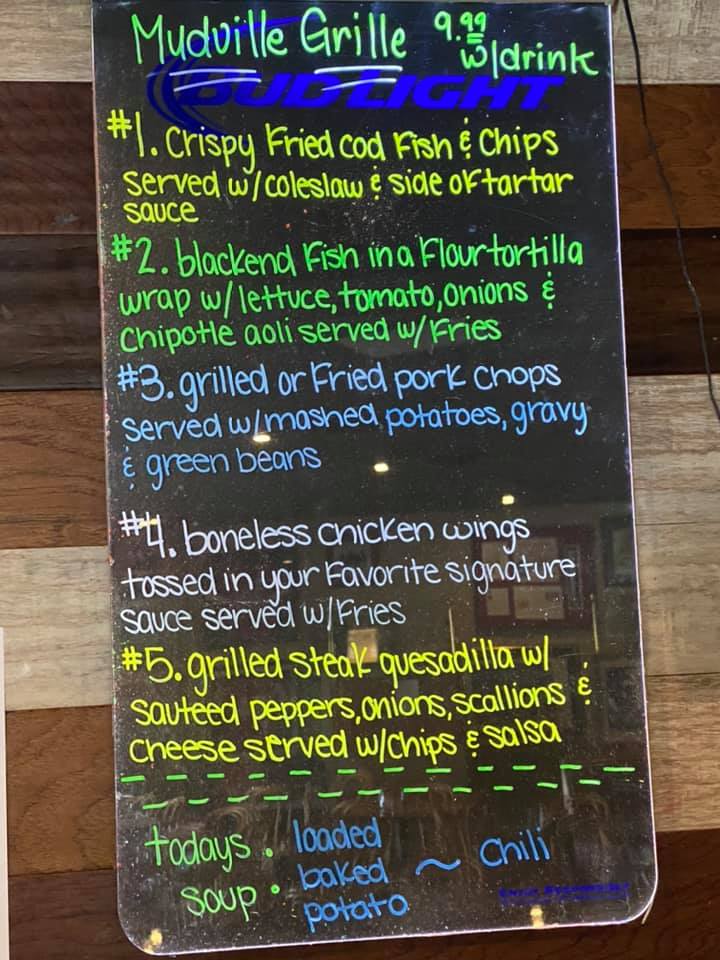 Mudville Grille 9.99
w/drink
BUD LIGHT
#1. Crispy Fried cod Fish & Chips
Served w/coleslaw & side of tartar
sauce
#2. blackend Fish in a Flour tortilla
wrap w/lettuce, tomato, onions &
Chipotle aoli served w/Fries
#3. grilled or Fried pork chops
served w/mashed potatoes, gravy
& green beans
#4. boneless chicken wings
tossed in your Favorite signature
sauce served w/Fries
#5. grilled steak quesadilla w/
sauteed peppers, onions, scallions &
cheese served w/chips & salsa
todays soup : loaded baked potato ~ Chili
ENJOY RESPONSIBLY